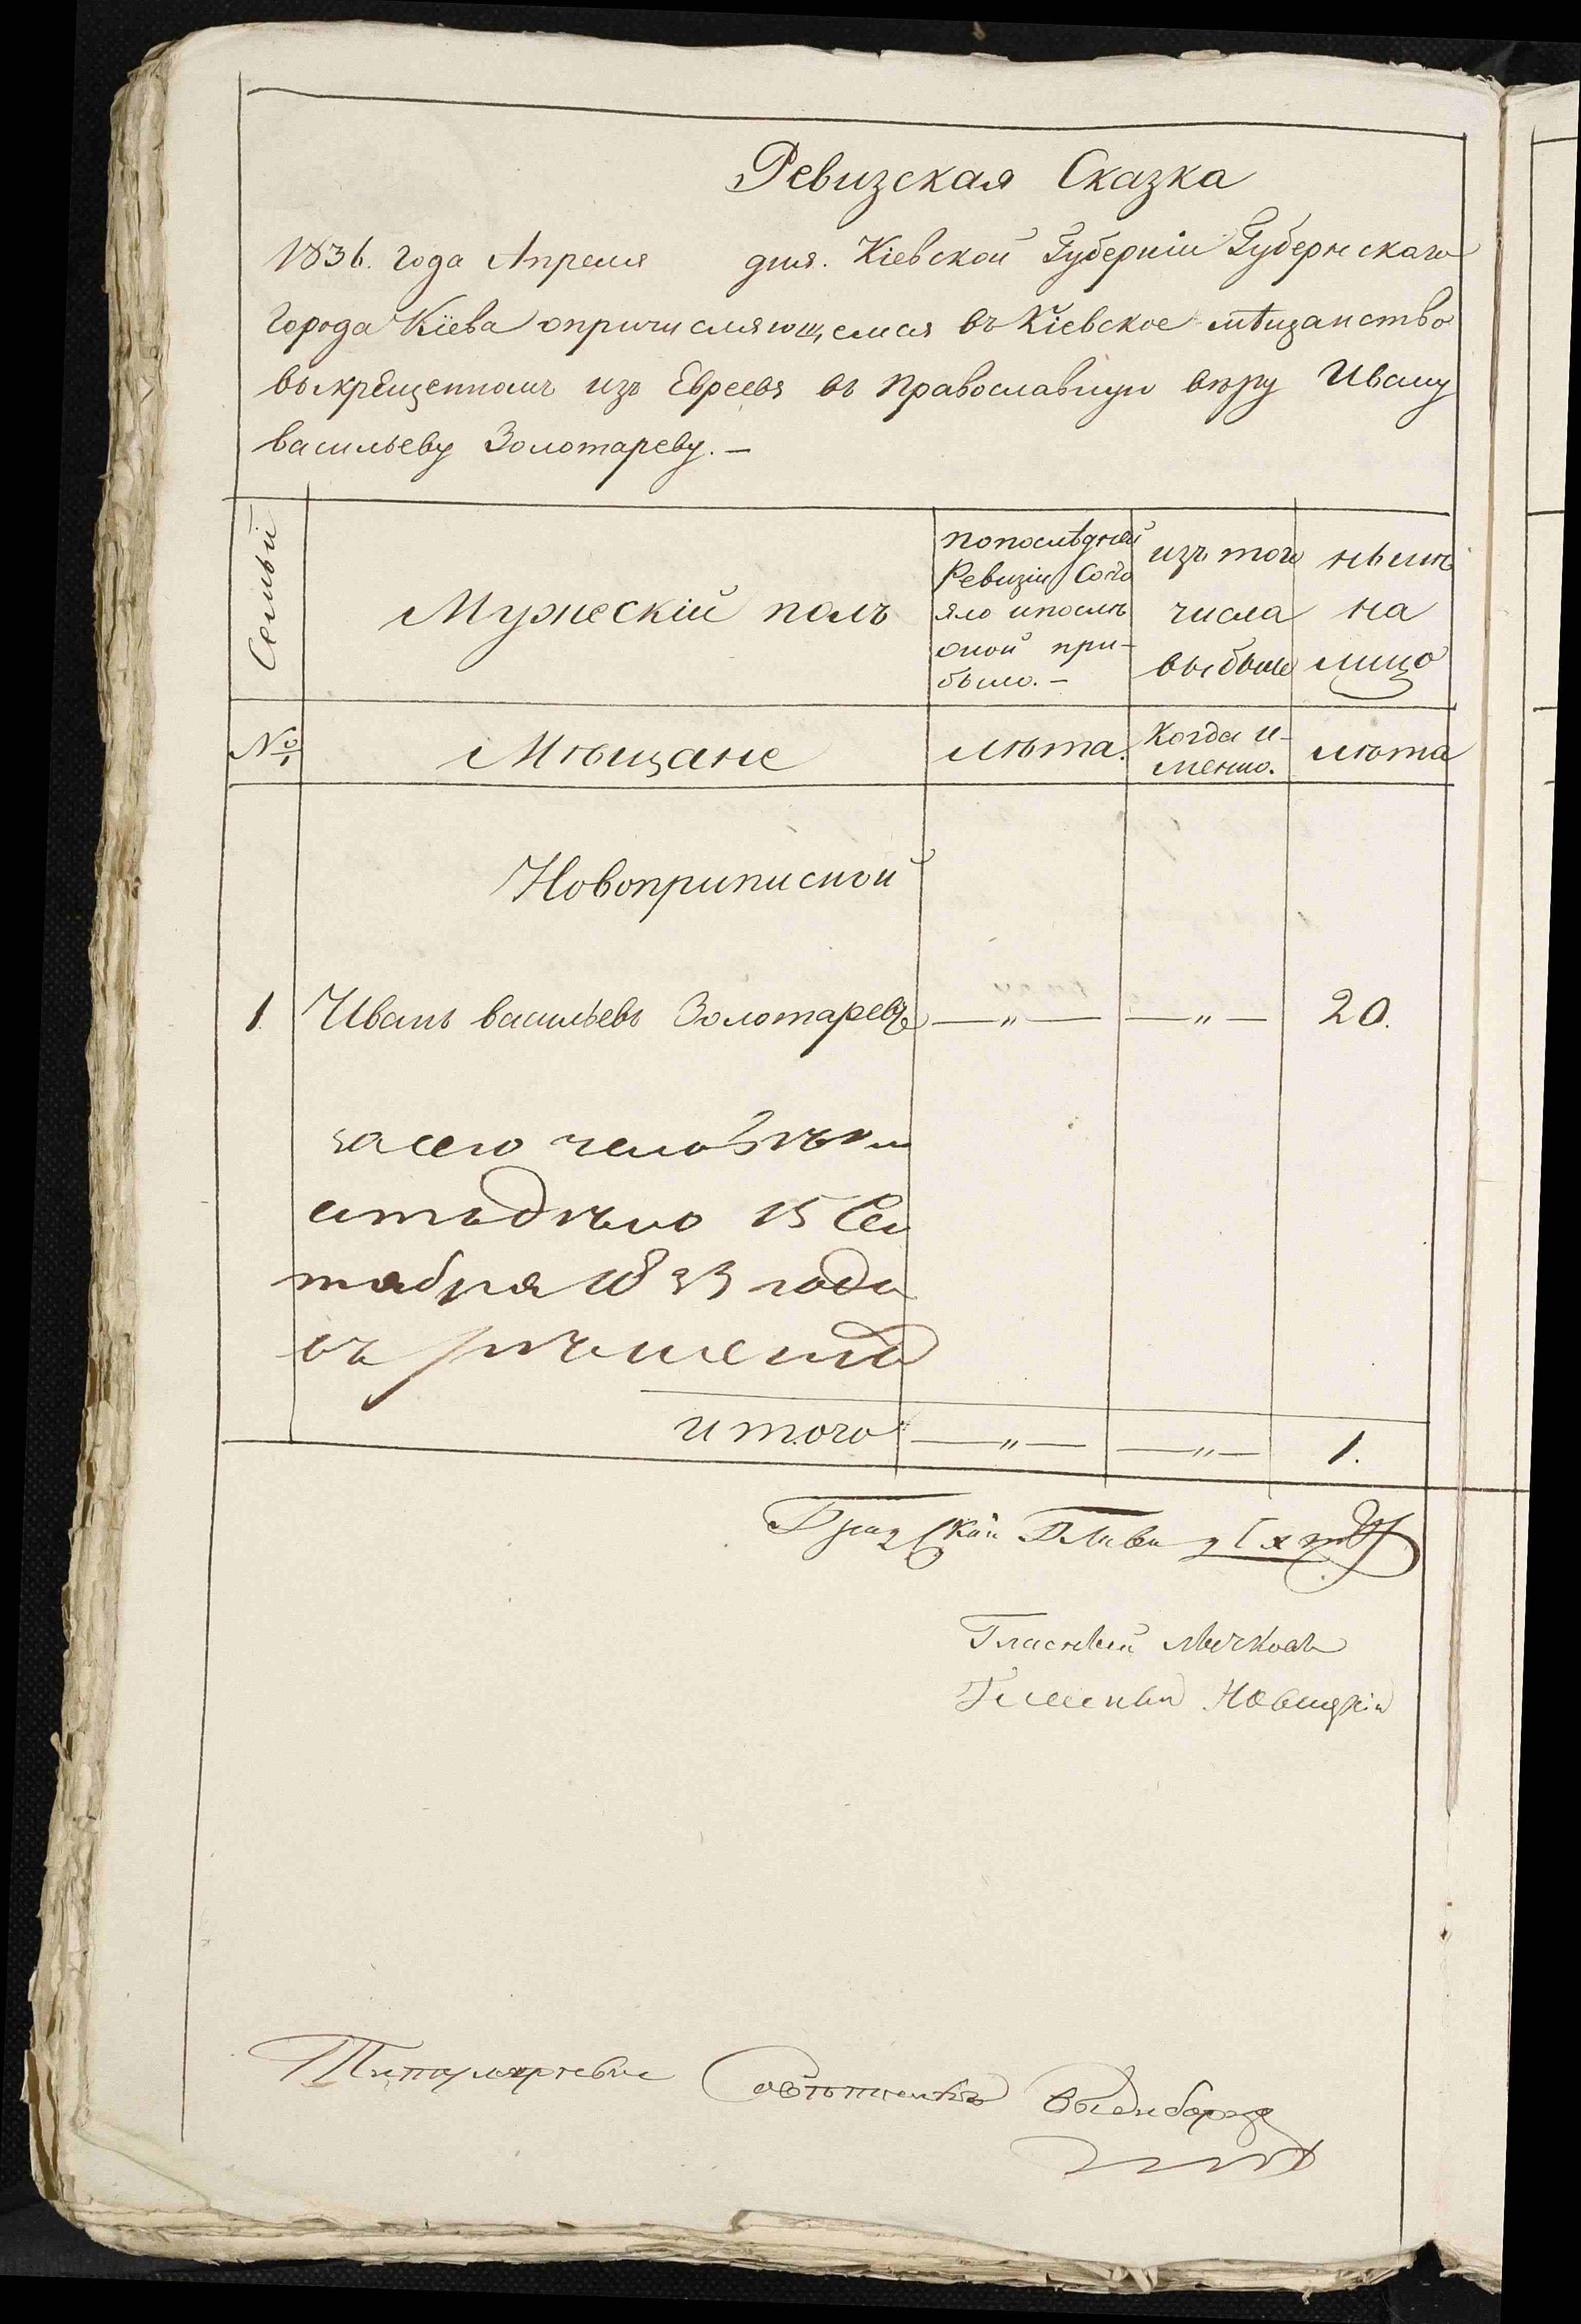 Ревизская Сказка
1836. года Апреля дня. Кіевской Губерніи Губернскаго
города Кіева опричисляющемся въ Кіевское мѣщанство
выкрещенномъ изъ Евреевъ въ православную вѣру Ивану
васильеву Золотареву. —
Семьи
Мужескій полъ
попослѣдней Ревизіи Состояло ипослѣ оной при-было. —
изъ того числа выбыло
нынѣ на лицо
№
Мѣщане
лѣта.
Когда и-менно.
лѣта
Новоприписной
1. Иванъ васильевъ Золотаревъ — „ — — „ — 20.
15 Сен
тября 1833 года
итого — „ — — „ — 1.
Градской Глава
Гласный
Гласный Новицкій
Титулярный Совѣтникъ